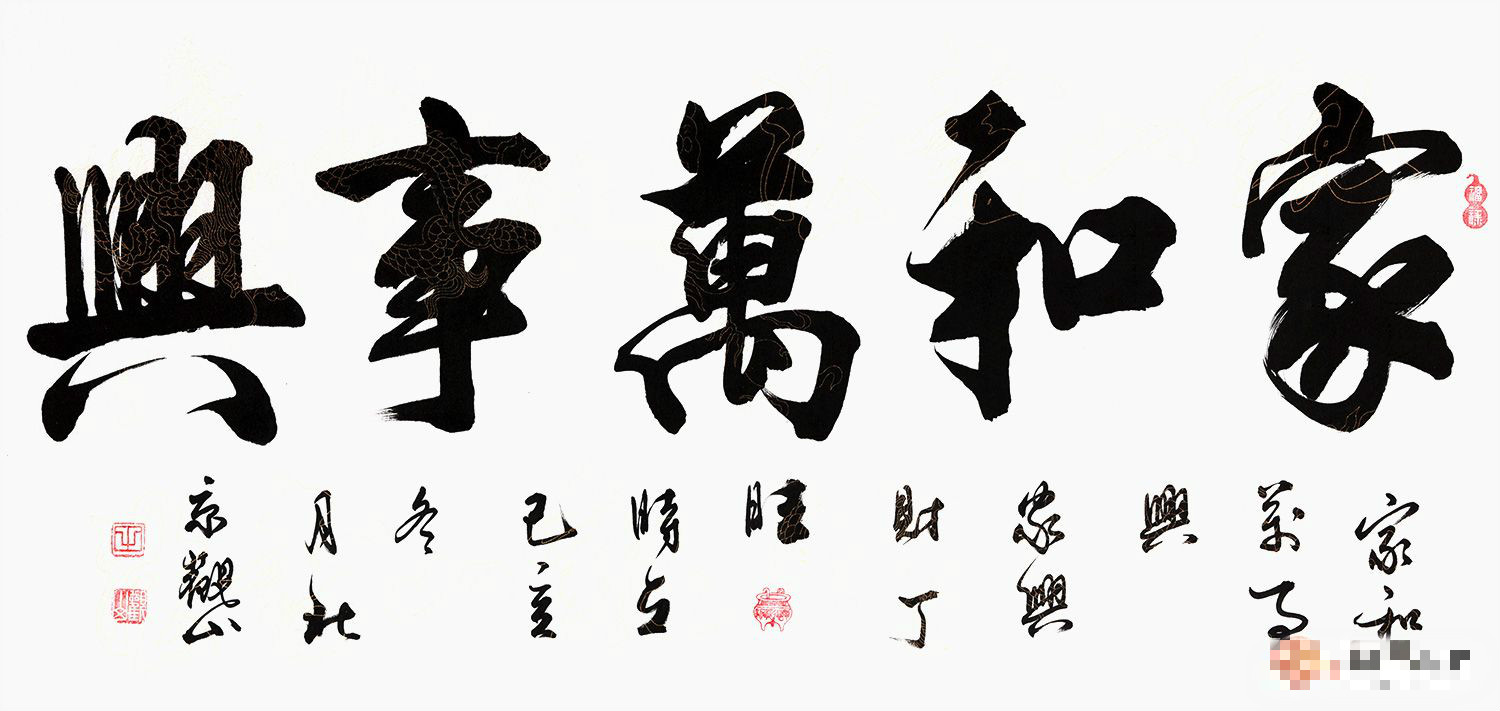 家和萬事興
福祿
家和
萬事
興
家興
財丁
旺
時在
己亥
冬
月北
京觀山